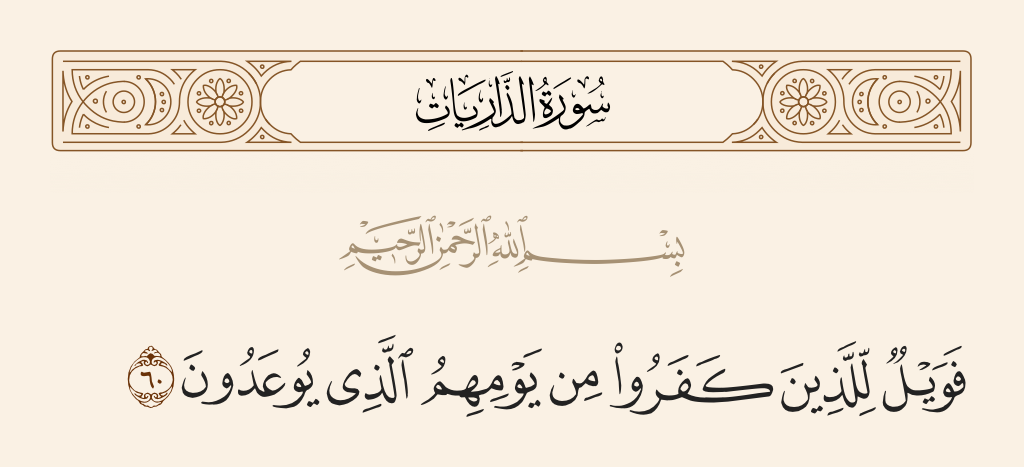 سُورَةُ الذَّارِيَاتِ
بِسْمِ ٱللَّهِ ٱلرَّحْمَٰنِ ٱلرَّحِيمِ
فَوَيْلٌ لِّلَّذِينَ كَفَرُوا۟ مِن يَوْمِهِمُ ٱلَّذِى يُوعَدُونَ ٦٠